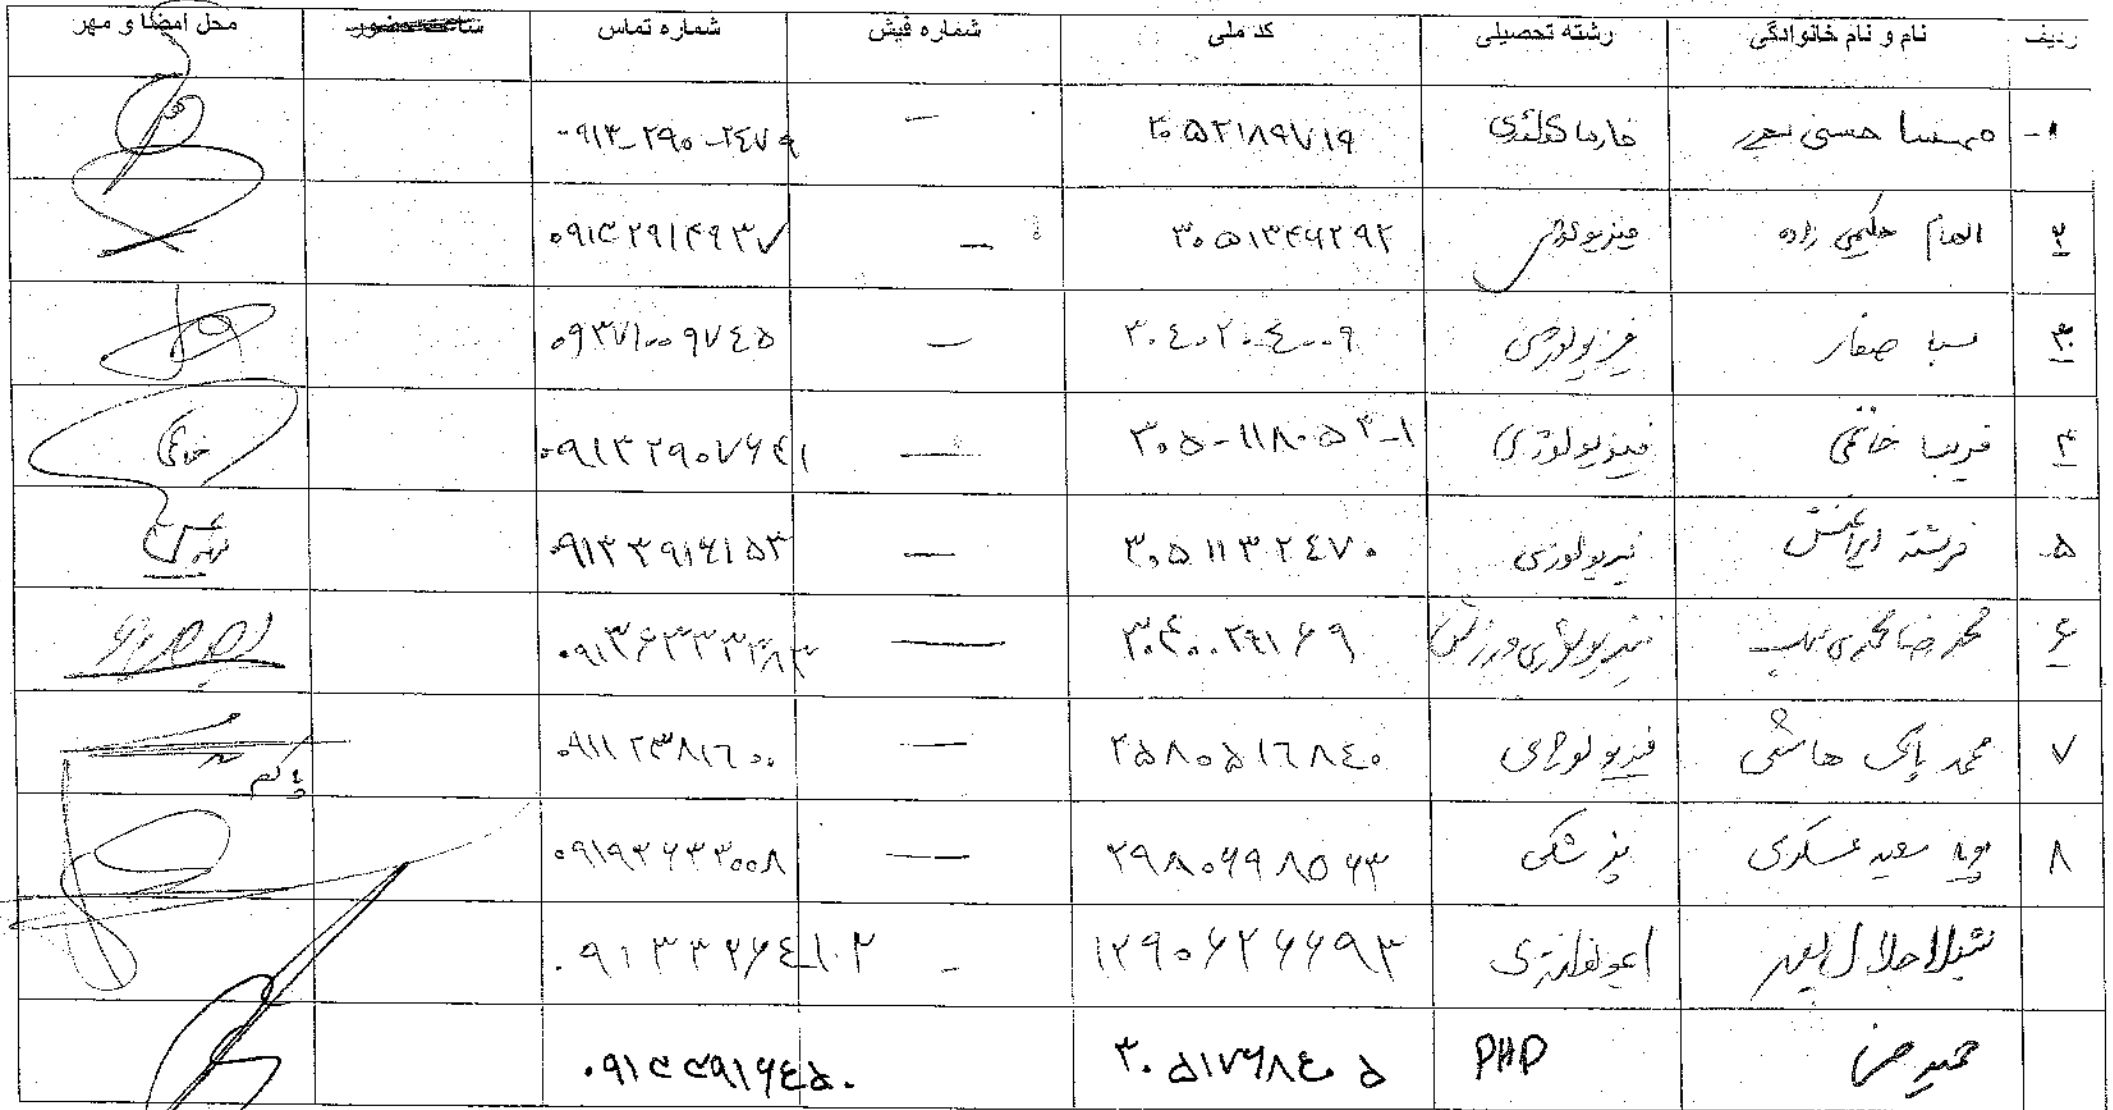 ردیف نام و نام خانوادگی رشته تحصیلی کد ملی شماره فیش شماره تماس ساعت حضور محل امضا و مهر
۱- مهسا حسنی فارماکولوژی ۳۰۵۲۱۸۹۷۱۹ — ۰۹۱۳-۲۹۰-۲٤۷۹
۲ الهام حکیمی زاده فیزیولوژی ۳۰۵۱۳۴۶۲۹۲ — ۰۹۱۳۲۹۱۴۹۳۷
۳ سبا صفار فیزیولوژی ۳۰٤۰۲۰٤۰۰۹ — ۰۹۳۷۱۰۰۹۷٤۵
۴ فریبا خاتمی فیزیولوژی ۳۰۵-۱۱۸۰۵۳-۱ — ۰۹۱۳۲۹۰۷۶۴۱
۵ فرشته ایرانمنش فیزیولوژی ۳۰۵۱۱۳۲٤۷۰ — ۰۹۱۳۳۹۱۶۱۵۳
۶ محمدرضا محمدی فیزیولوژی ورزشی ۳۰۴۰۰۲۹۱۶۹ —
۷ محمد پاک هاشمی فیزیولوژی ۲۵۸۰۵۱٦۸٤۰ — ۰۹۱۱۲۳۸۱٦۰۰
۸ پویه سعید عسکری پزشکی ۲۹۸۰۶۹۸۵۶۳ — ۰۹۱۹۳۶۳۳۰۰۸
شیلا جلال پور ایمونولوژی ۱۲۹۰۶۲۶۶۹۳ - ۰۹۱۳۳۲۶٤۱۰۲
PHD ۳۰۵۱۷۶۸٤۰۵ ۰۹۱۳۳۹۱۶٤۵۰